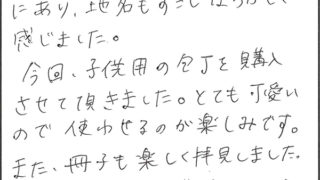 にあり、地名も
感じました。
今回、子供用の包丁を購入
させて頂きました。とても可愛い
ので使わせるのが楽しみです。
また、冊子も楽しく拝見しました。